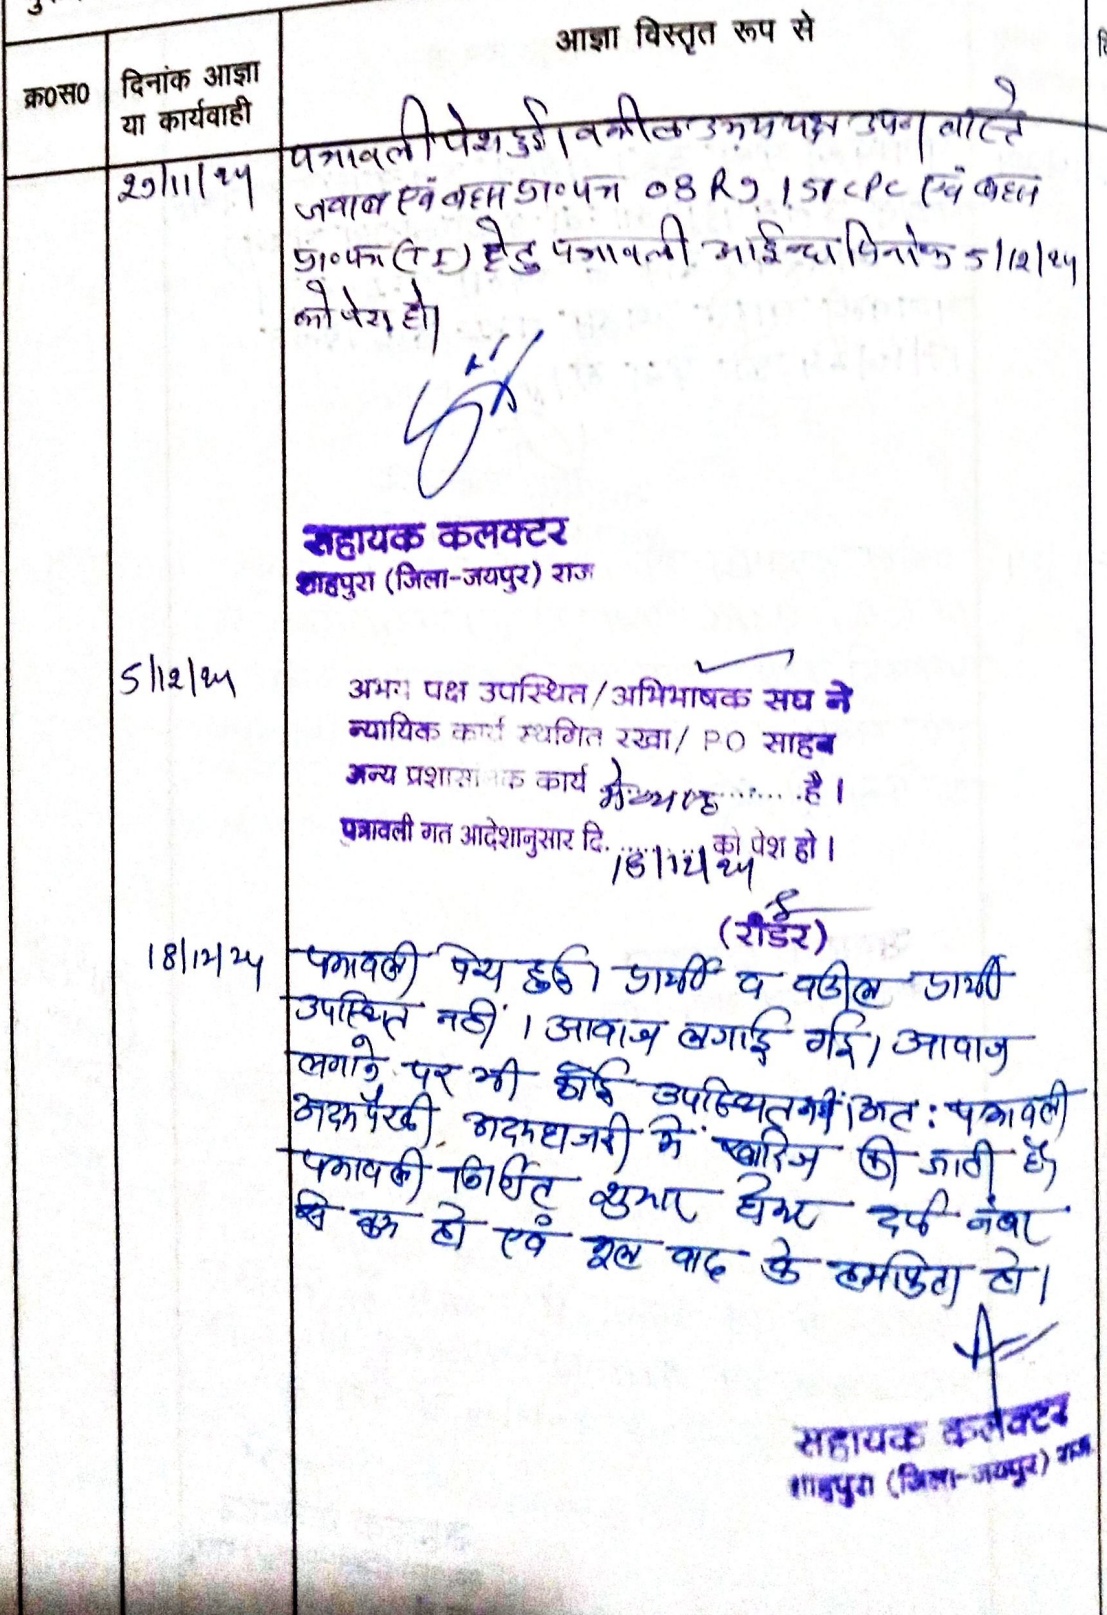 आज्ञा विस्तृत रूप से
क्र०स०
दिनांक आज्ञा
या कार्यवाही
पत्रावली पेश हुई। वकील उभय पक्ष उप०। वास्ते
जवाब एवं बहस प्रा०पत्र 08 R 9 151 CPC एवं बहस
प्रा०पत्र (T I) हेतु पत्रावली आईन्दा दिनांक 5/12/24
को पेश हो।
सहायक कलक्टर
शाहपुरा (जिला-जयपुर) राज
5/12/24
अभय पक्ष उपस्थित/अभिभाषक संघ ने
न्यायिक कार्य स्थगित रखा/ PO साहब
अन्य प्रशासनिक कार्य में व्यस्त ........ है।
पत्रावली गत आदेशानुसार दि. 18/12/24 को पेश हो।
(रीडर)
18/12/24
पत्रावली पेश हुई। प्रार्थी व वकील प्रार्थी
उपस्थित नहीं। आवाज लगाई गई। आवाज
लगाने पर भी कोई उपस्थित नहीं। अत: पत्रावली
अदम पैरवी, अदम हाजरी में खारिज की जाती है।
पत्रावली निर्णित शुमार होकर दर्ज नंबर
से कम हो एवं मूल वाद के हमफिता हो।
सहायक कलक्टर
शाहपुरा (जिला-जयपुर) राज